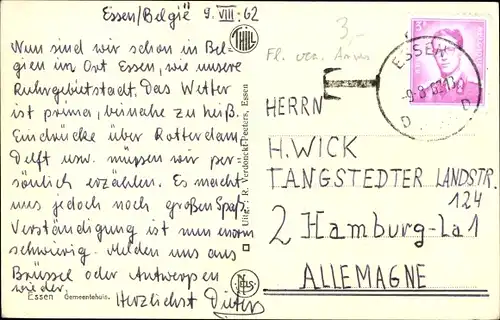 Essen/België 9.VIII.62
Nun sind wir schon in Bel-
gien im Ort Essen, wie unsere
Ruhrgebietstadt. Das Wetter
ist prima, beinahe zu heiß.
Eindrücke über Rotterdam,
Delft usw. müssen wir per-
sönlich erzählen. Es macht
uns jedoch noch großen Spaß.
Verständigung ist nun enorm
schwierig. Melden uns aus
Brüssel oder Antwerpen
wieder.
Herzlichst Dieter
Essen Gemeentehuis.
THILL
Uitg.: R. Verdonckt-Peeters, Essen
NELS
3,-
T
ESSEN
9-8
D D
HERRN
H. WICK
TANGSTEDTER LANDSTR.
124
2 Hamburg-La 1
ALLEMAGNE